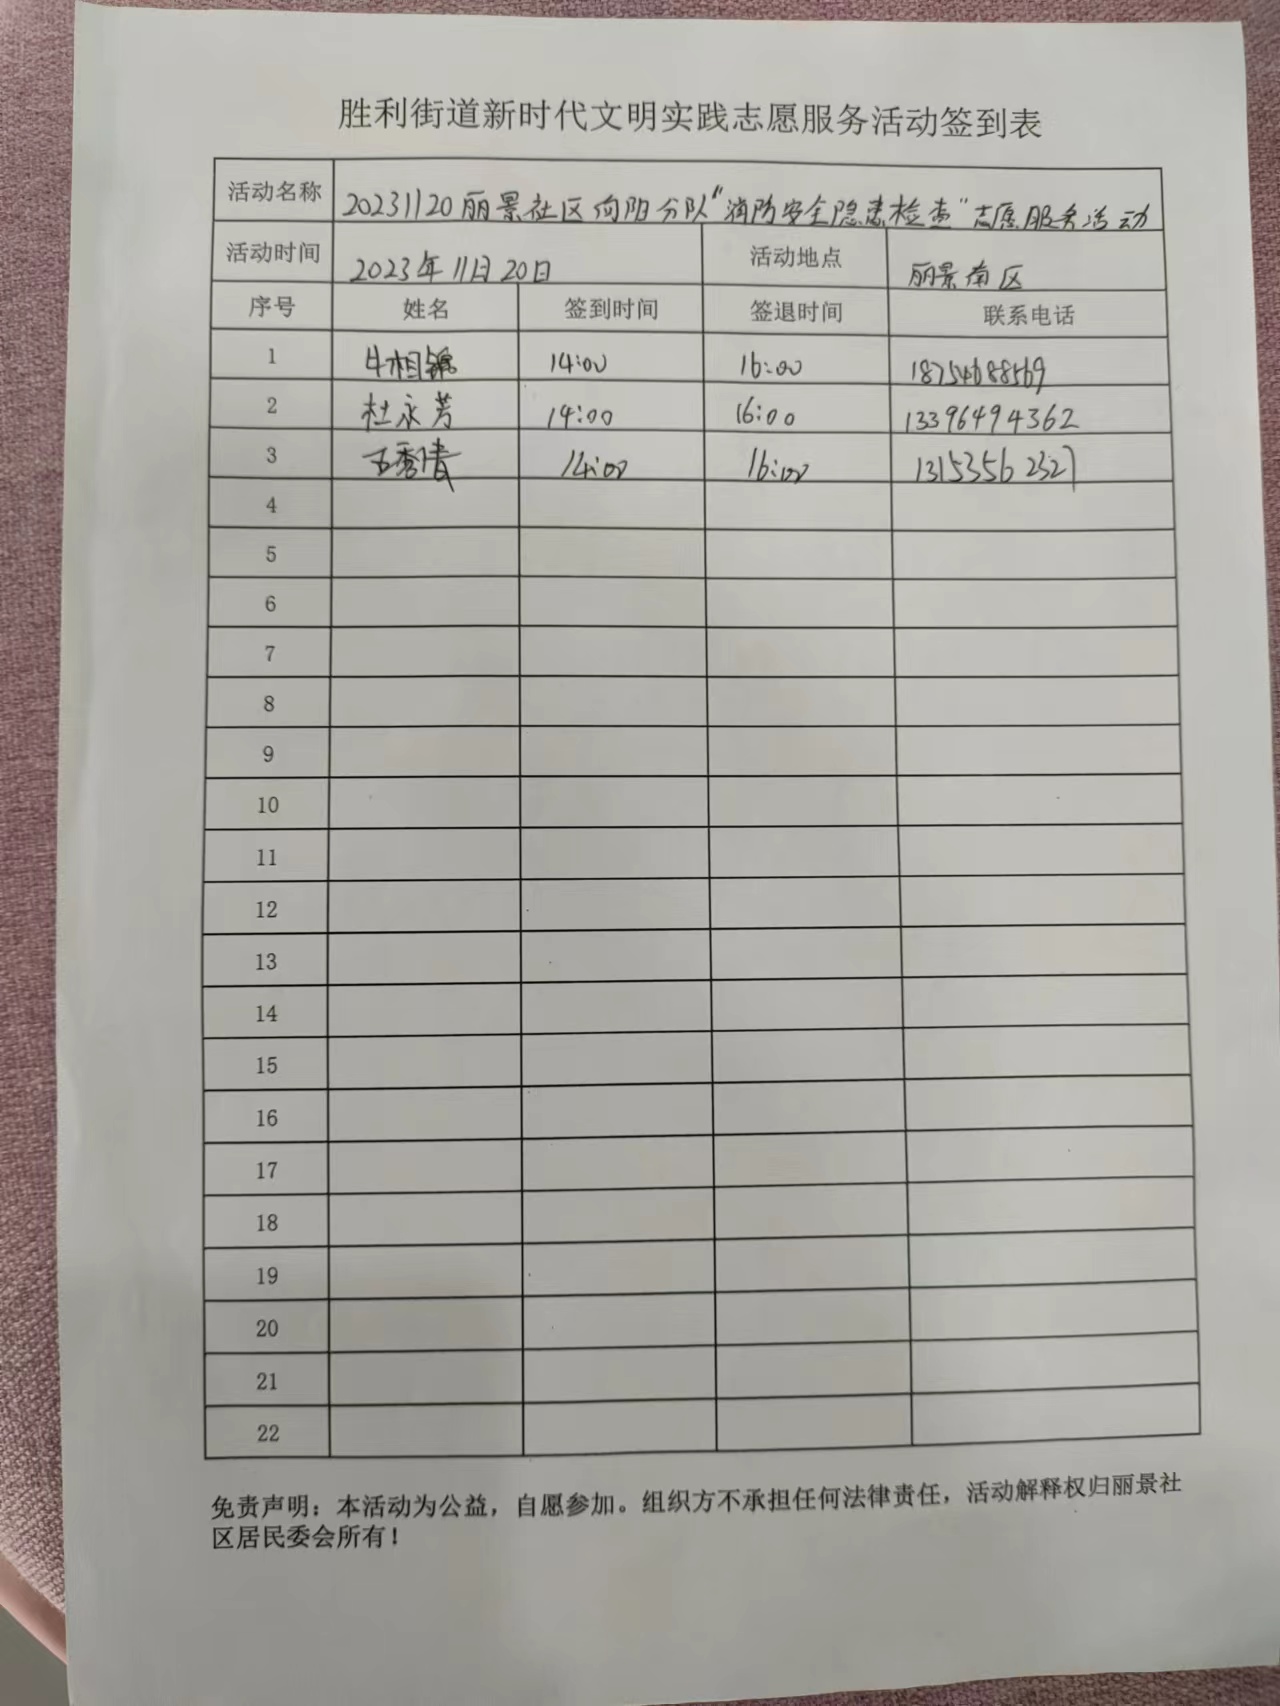 胜利街道新时代文明实践志愿服务活动签到表
活动名称 20231120丽景社区向阳分队"消防安全隐患检查"志愿服务活动
活动时间 2023年11月20日 活动地点 丽景南区
序号 姓名 签到时间 签退时间 联系电话
1 牛相 14:00 16:00 18754688569
2 杜永芳 14:00 16:00 13396494362
3 秀清 14:00 16:00 13153562327
4
5
6
7
8
9
10
11
12
13
14
15
16
17
18
19
20
21
22
免责声明：本活动为公益，自愿参加。组织方不承担任何法律责任，活动解释权归丽景社
区居民委会所有！